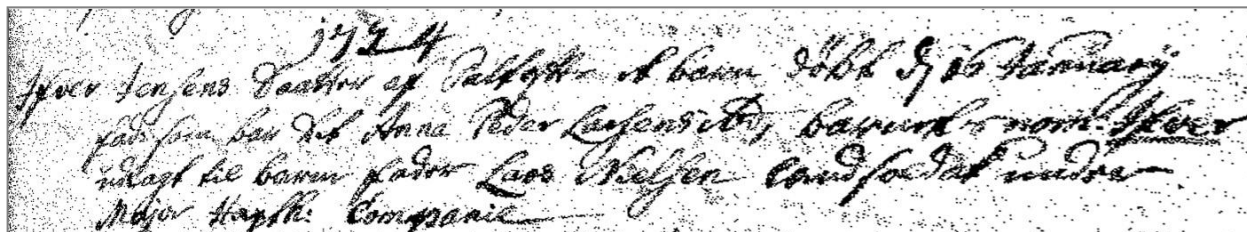 1724
Ifver Jensens Daatter af Saltofte et barn döbt dj 16 January
fad: som bar det Anna Peder Larsens ibd, barnetz nom. Ifver
udlagt til barne fader Lars Nielsen Landsoldat under
Major Companie